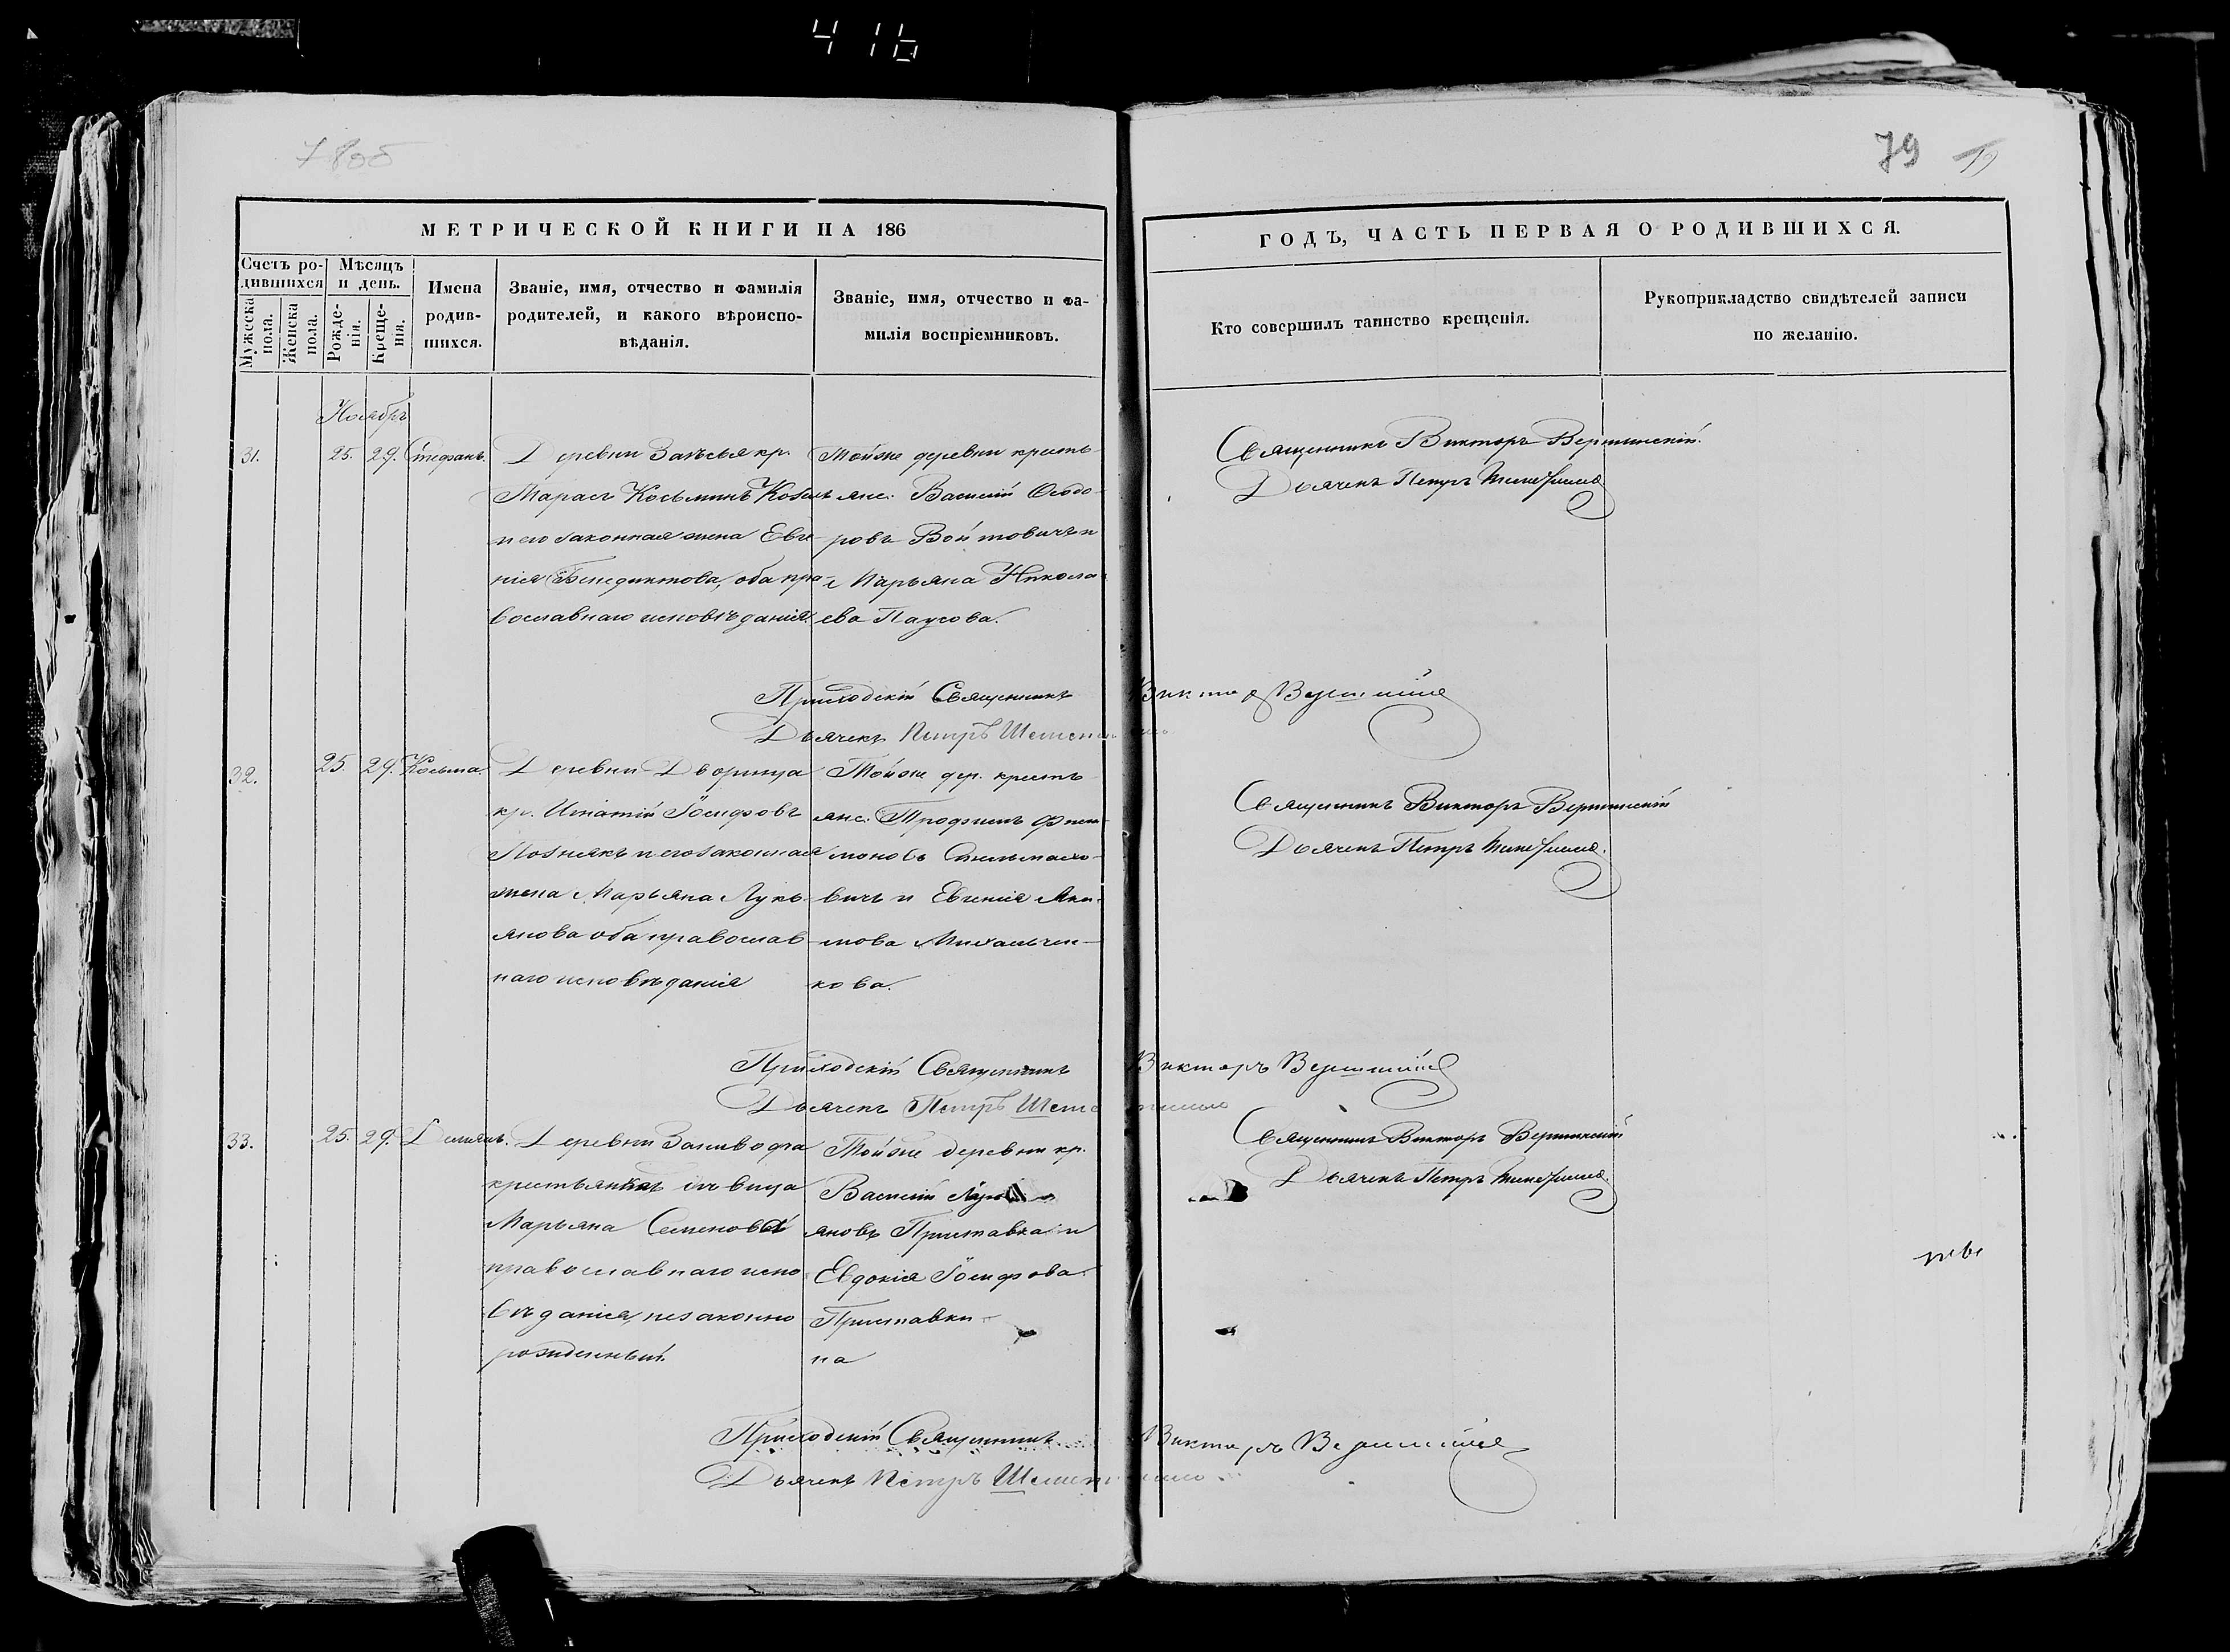 416
79
МЕТРИЧЕСКОЙ КНИГИ НА 186
ГОДЪ, ЧАСТЬ ПЕРВАЯ О РОДИВШИХСЯ.
Счетъ ро-
дившихся
Мужеска
пола.
Женска
пола.
Мѣсяцъ
и день.
Рожде-
нія.
Креще-
нія.
Имена
родив-
шихся.
Званіе, имя, отчество и фамилія
родителей, и какого вѣроиспо-
вѣданія.
Званіе, имя, отчество и фа-
милія воспріемниковъ.
Кто совершилъ таинство крещенія.
Рукоприкладство свидѣтелей записи
по желанію.
Ноябрь
31.
25.
29.
Стефанъ.
Деревни Залѣсья кр.
Тарасъ Косьминъ
и его законная жена Евге-
нія Бенедиктова, оба пра-
вославнаго исповѣданія.
Тойже деревни кресть-
яне: Василій Ѳеодо-
ровъ Войтовичъ и
Марьяна Никола-
ева Паусова.
Священникъ Викторъ
Дьячекъ Петръ
Приходскій Священникъ Викторъ
Дьячекъ Петръ
32.
25.
29.
Косьма.
Деревни Дворища
кр. Игнатій Іосифовъ
Позникъ и его законная
жена Марьяна Лукь-
янова оба православ-
наго исповѣданія
Тойже дер. кресть-
яне: Трофимъ Фили-
моновъ
вичъ и Евгенія Яки-
мова Михальчен-
кова.
Священникъ Викторъ
Дьячекъ Петръ
Приходскій Священникъ Викторъ
Дьячекъ Петръ
33.
25.
29.
Деміянъ.
Деревни
крестьянка дѣвица
Марьяна Семенова
православнаго испо-
вѣданія, незаконно
рожденный.
Тойже деревни кр.
Василій
яновъ Приставка и
Евдокія Іосифова
Приставки-
на
Священникъ Викторъ
Дьячекъ Петръ
Приходскій Священникъ Викторъ
Дьячекъ Петръ